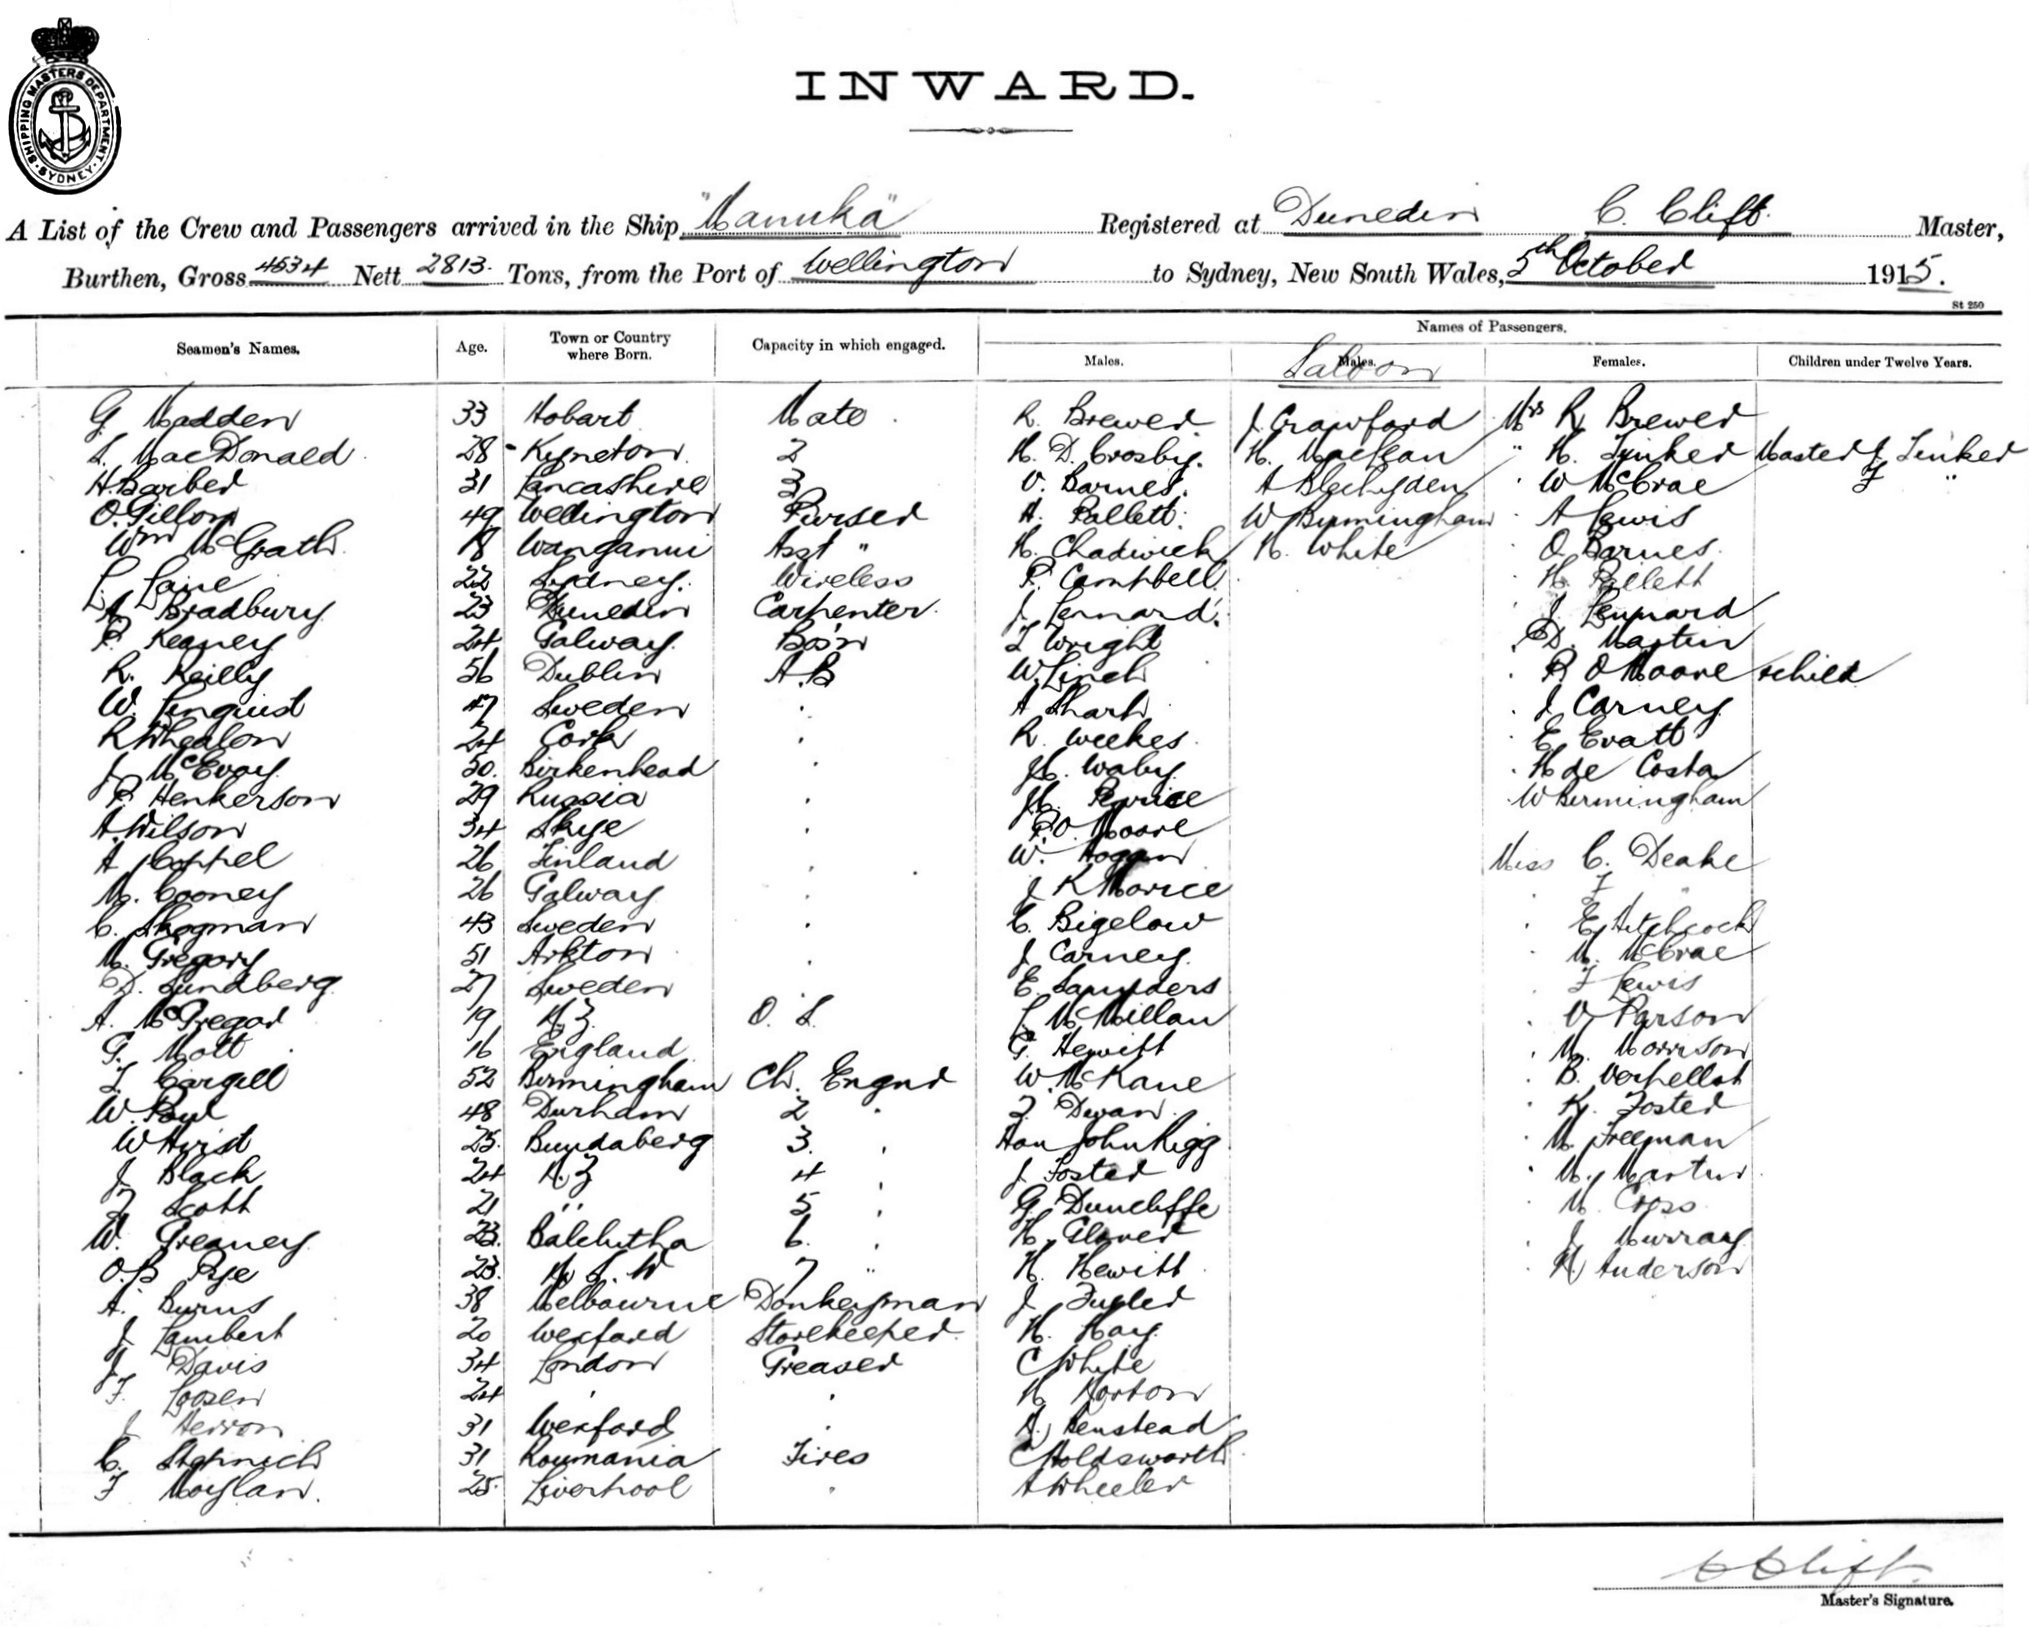 SHIPPING MASTERS DEPARTMENT
SYDNEY
INWARD.
A List of the Crew and Passengers arrived in the Ship "Manuka" Registered at Dunedin C. Clift. Master,
Burthen, Gross 4534 Nett 2813. Tons, from the Port of Wellington to Sydney, New South Wales, 5th October 1915.
St 250
Names of Passengers.
Seamen's Names. Age. Town or Country where Born. Capacity in which engaged. Males. Males. Females. Children under Twelve Years.
Saloon
G. Madden 33 Hobart Mate R. Brewer J. Crawford Mrs R Brewer
L. MacDonald 28 Kyneton 2 H. D. Crosby. H. Maclean " H. Tinker Master J Tinker
H. Barber 31 Lancashire 3 O. Barnes. A W McCrae F "
O. Gillon 49 Wellington Purser A. Pallett. W Burmingham A Lewis
Wm McGrath 18 Wanganui Asst " H. Chadwick H. White O Barnes.
L. Lane 22 Sydney. Wireless P. Campbell H. Pallett
A. Bradbury 23 Dunedin Carpenter. J. Lennard. J. Lennard
P. Keaney 24 Galway Bos'n Wright D. Martin
R. Reilly 56 Dublin A.B W. Linch P. O Moore & child
W. Linquist 47 Sweden A Sharp J Carney
R Whealon 24 Cork R. Weekes. E. Evatt
J McEvoy 50. Birkenhead H. Waby H de Costa
P. Henkerson 29 Russia W Birmingham
A. Wilson 34 Skye P. O. Moore
A Coppel 26 Finland W. Hogan Miss C. Deake
M. Cooney 26 Galway J R Morice F "
C. Skogman 43 Sweden C. Bigelow E Hitchcock
M. Gregory 51 J Carney. M. McCrae
D. Lundberg 27 Sweden E. Saunders F Lewis
A. McGregor 19 N.Z. O. S. L McMillan V Parson
G. Mott 16 England G. Hewitt M. Morrison
Cargill 52 Birmingham Ch. Engnr W. McKane B.
W. Paul 48 Durham 2 " Dwan K. Foster
W Hirst 25. Bundaberg 3. " Hon John Rigg M Freeman
J Black 24 N.Z 4 " J Foster M. Martin
Scott 21 " 5 " G. Duncliffe M. Cross
W. Greaney 23. Balclutha 6. " H. Glover J Murray
O. B Pye 23. N. S. W 7 " H. Hewitt H Anderson
A. Burns 38 Melbourne Donkeyman J.
J Lambert 20 Wexford Storekeeper. H. Hay.
J Davis 34 London Greaser C White
F. 24 " " H Norton
J Herron 31 Wexford " A. Benstead
C. 31 Roumania Fires C Holdsworth
F Moylan. 25. Liverpool " A Wheeler
C Clift.
Master's Signature.